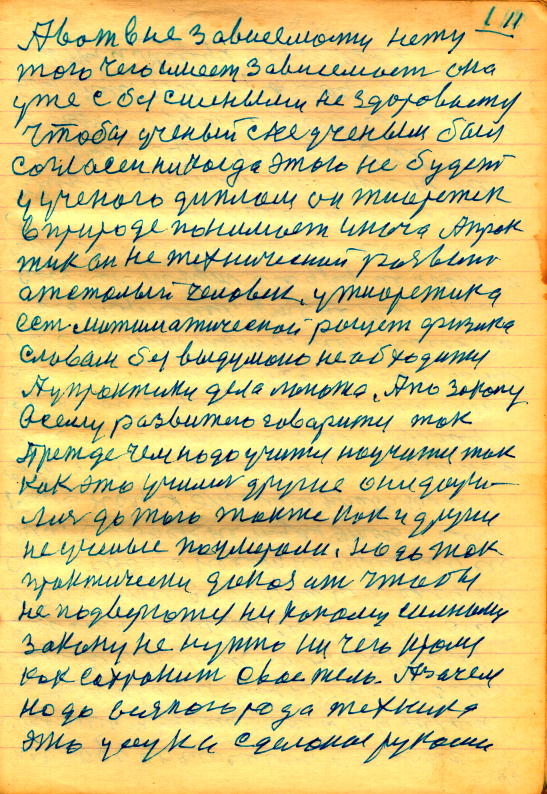 111
А вот в не зависемости нету
того чего имеет зависемост она
уже с был силными не здоровыму
чтобы ученый с не ученым был
согласен никогда этого не будет
у ученого диплом он тиоретик
в природе понимает иноча А прак
тик он не технический развито
отсталый человек, у тиоретика
ест матиматический расчет физика
словам был выдумано необходиму
А у практики дела ложожа, А по закону
всему развитого говарити так
Прежде чем надо учити научити так
как это училис другие они доучи-
лис до того также как и други
не ученые поумерали, надо так
практически доказат чтобы
не подвергатся ни какому силному
закону не нужно ни чего кроми
как сохранит свое тело. А зачем
надо всякого рода техника
это узеука сделаное руками